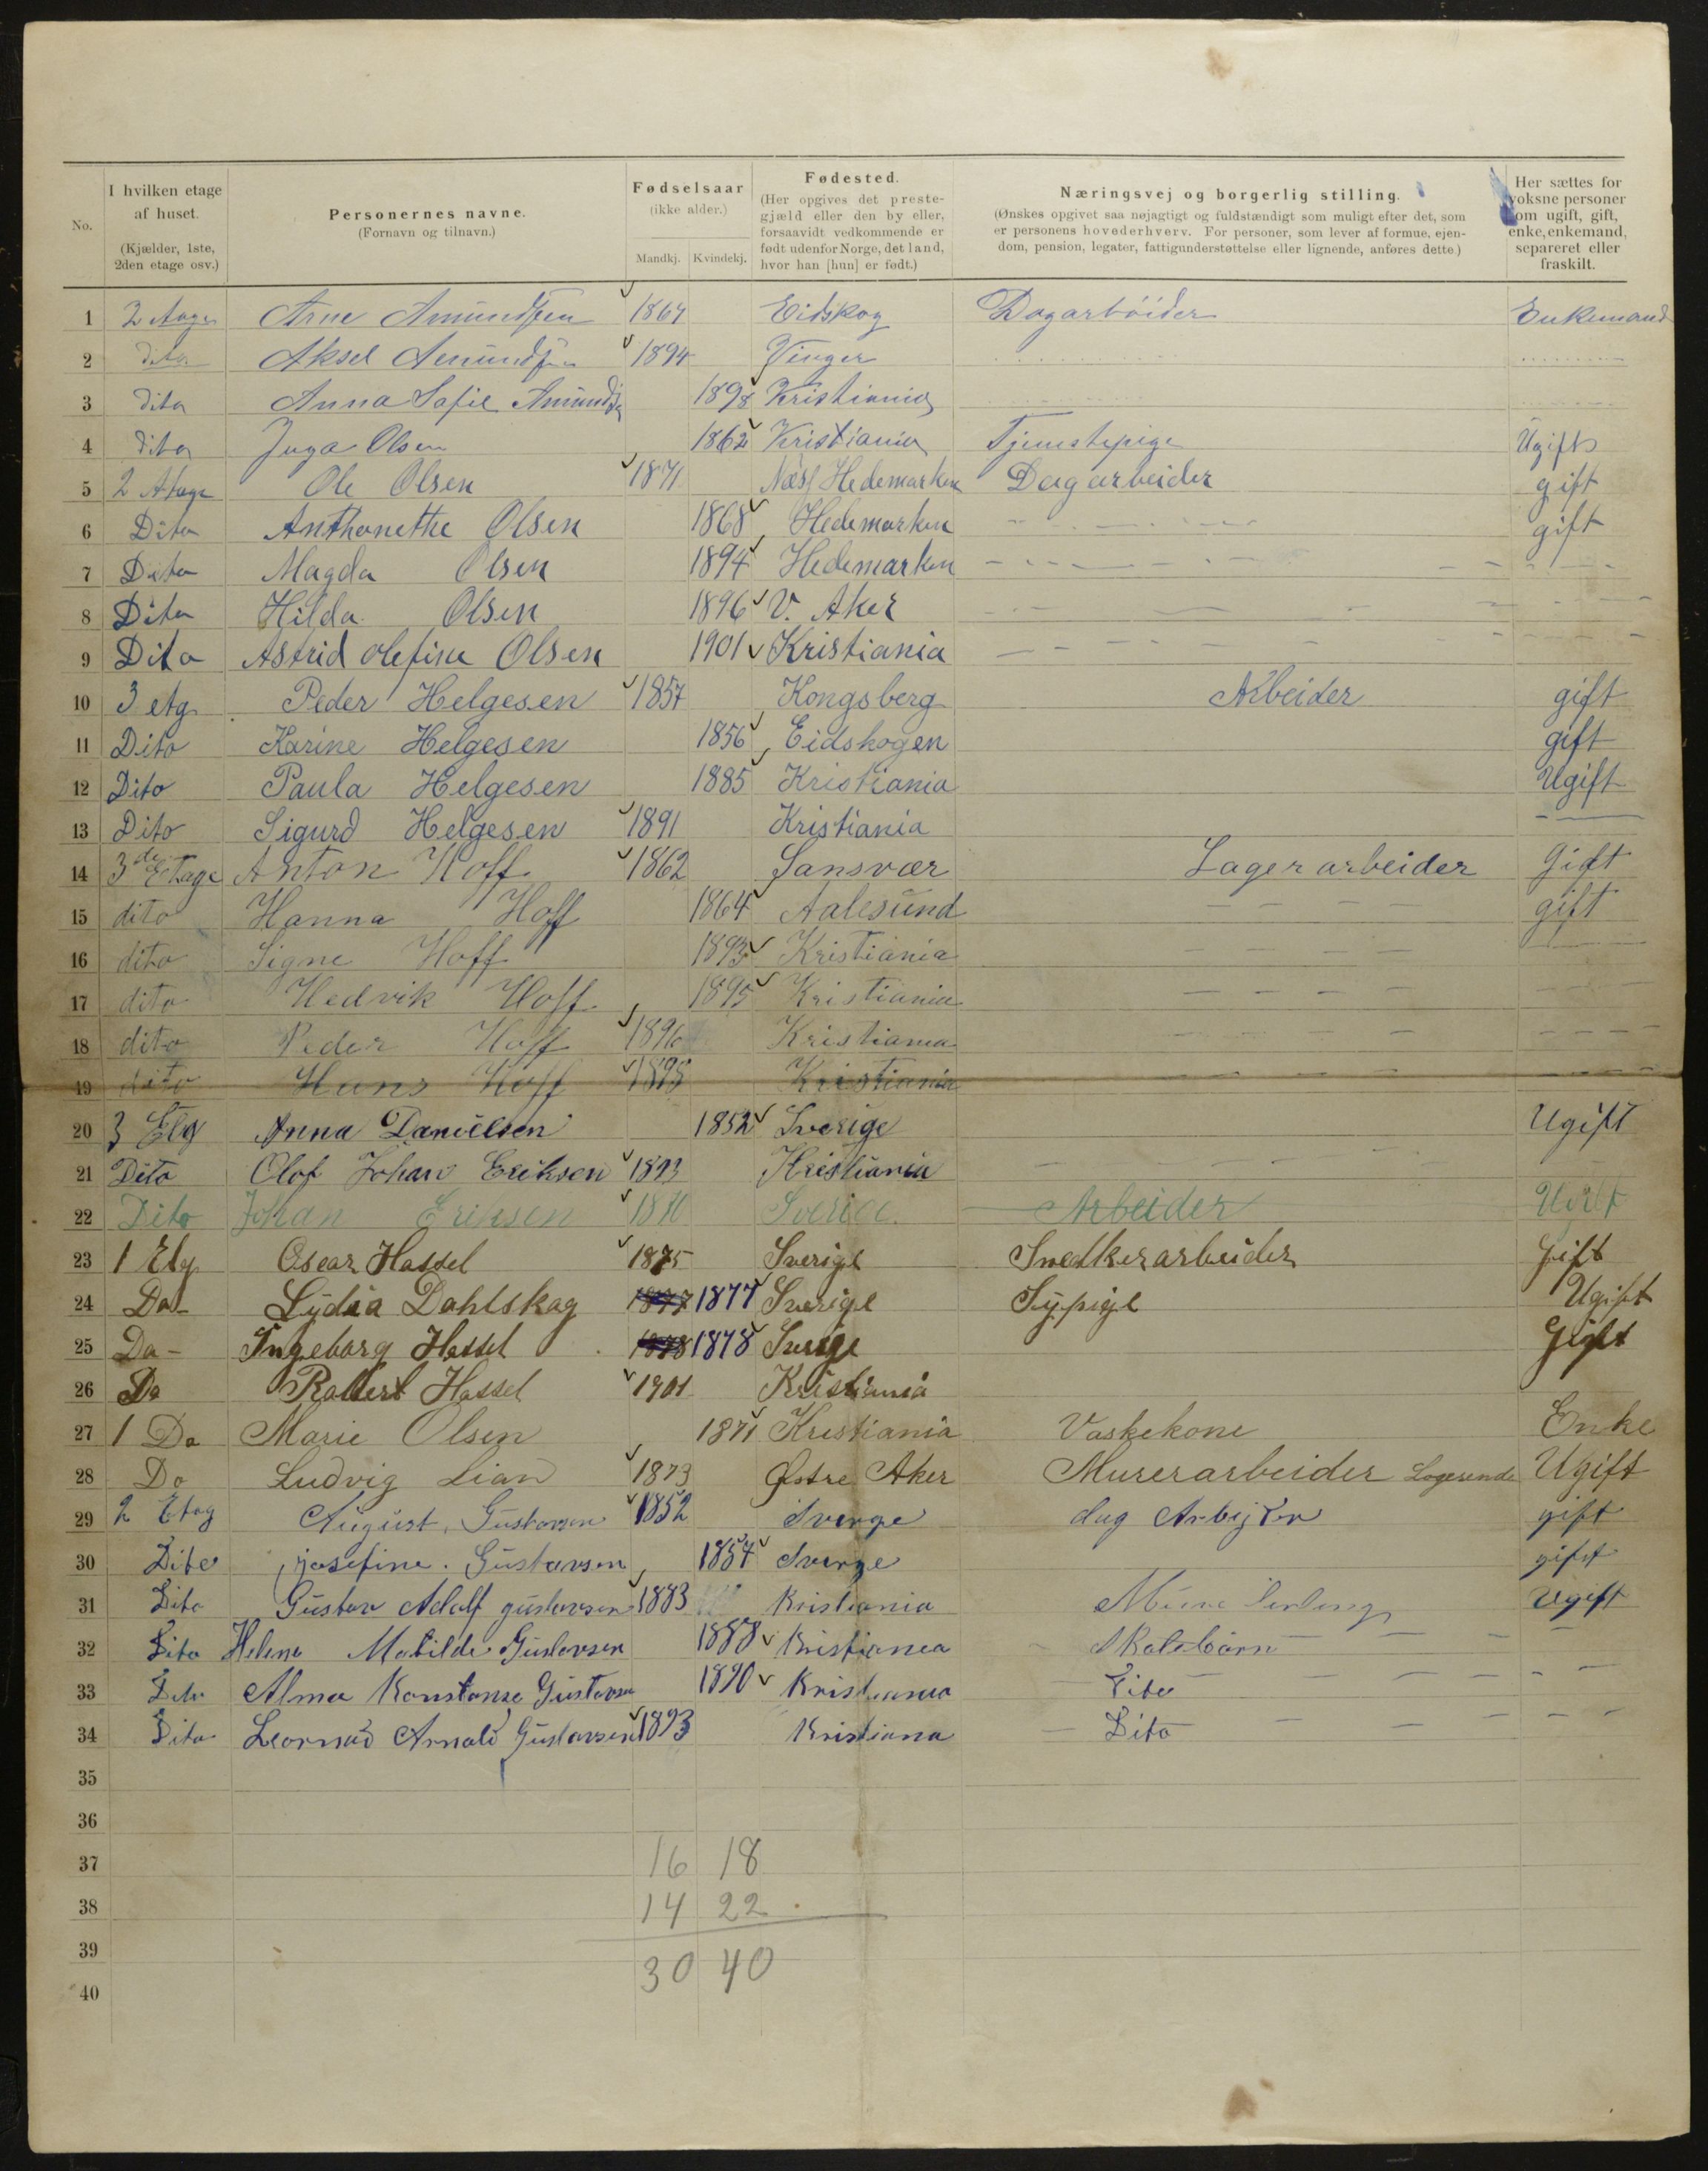 No.
I hvilken etage af huset. (Kjælder, 1ste, 2den etage osv.)
Personernes navne. (Fornavn og tilnavn.)
Fødselsaar (ikke alder.) Mandkj. Kvindekj.
Fødested. (Her opgives det prestegjæld eller den by eller, forsaavidt vedkommende er født udenfor Norge, det land, hvor han [hun] er født.)
Næringsvej og borgerlig stilling. (Ønskes opgivet saa nøjagtigt og fuldstændigt som muligt efter det, som er personens hovederhverv. For personer, som lever af formue, ejendom, pension, legater, fattigunderstøttelse eller lignende, anføres dette.)
Her sættes for voksne personer om ugift, gift, enke, enkemand, separeret eller fraskilt.
1 2 Arne Amundsen Eidskog Dagarböider Enkemand
2 dito Aksel Amundsen 1894 Vinger
3 dito Anna Sofie 1898 Kristiania
4 dito Inga Olsen 1862 Kristiania Tjenestepige Ugift
5 2 Ole Olsen 1871 Næs Hedemarken Dagarbeider gift
6 Dito Anthonethe Olsen 1868 Hedemarken gift
7 Dito Magda Olsen 1894 Hedemarken
8 Dito Hilda Olsen 1896 V. Aker
9 Dito Astrid Olefine Olsen 1901 Kristiania
10 3 etg. Peder Helgesen 1857 Kongsberg Arbeider gift
11 Dito Karine Helgesen 1856 Eidskogen gift
12 Dito Paula Helgesen 1885 Kristiania Ugift
13 Dito Sigurd Helgesen 1891 Kristiania
14 3de Etage Anton Hoff 1862 Sansvær Lagerarbeider Gift
15 dito Hanna Hoff 1864 Aalesund gift
16 dito Signe Hoff 1893 Kristiania
17 dito Hedvik Hoff 1895 Kristiania
18 dito Peder Hoff 1896 Kristiania
19 dito Hans Hoff 1898 Kristiania
20 3 Etg Anna Danielsen 1852 Sverige Ugift
21 Dito Olof Johan Eriksen 1893 Kristiania
22 Dito Johan Eriksen Arbeider
23 1 Etg Oscar Hassel 1875 Sverige Snedkerarbeider Gift
24 Do- Lydia Dahlskag 1877 1877 Sverige Sypige Ugift
25 Do- Ingeborg Hassel 1878 1878 Sverige Gift
26 Do Robert Hassel 1901 Kristiania
27 1 Do Marie Olsen 1871 Kristiania Vaskekone Enke
28 Do Ludvig Lian 1873 Østre Aker Murerarbeider Logerende Ugift
29 2 Etag August Gustavsen 1852 Sverge dag Arbejder gift
30 Dito josefine Gustavsen 1857 Sverge gift
31 Dito Gustav Adolf gustavsen 1883 Kristiania Ugift
32 Dito Helene Matilde Gustavsen 1888 Kristianea Skolebörn
33 Dito Alma Konstanse Gustavsen 1890 Kristiania Dito
34 Dito Leornad Arnald Gustavsen 1893 Kristiana Dito
35
36
37 16 18
38 14 22
39
30 40
40